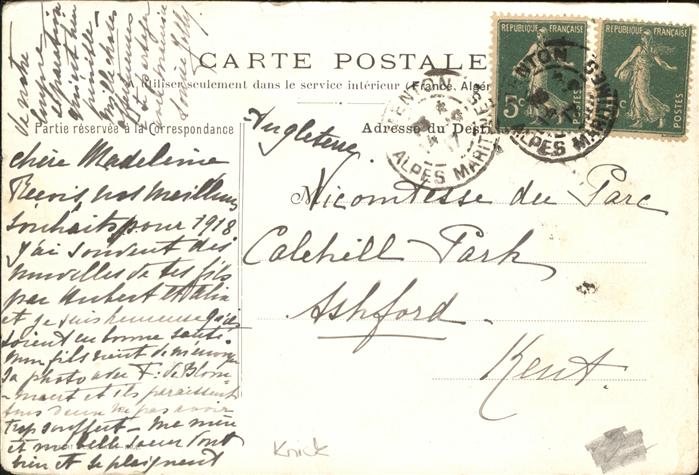 CARTE POSTALE
A utiliser seulement dans le service intérieur (France, Algérie
Partie réservée à la Correspondance
Adresse du Desti
RÉPUBLIQUE FRANÇAISE
5c
POSTES
RÉPUBLIQUE FRANÇAISE
c
POSTES
MENTON
ALPES MARITIMES
MENTON
ALPES MARITIMES
Angleterre
Vicomtesse du Parc
Calehill Park
Ashford
Kent.
chère Madeleine
Reçois nos meilleurs
souhaits pour 1918
J'ai souvent des
nouvelles de tes fils
par Aubert
et je suis heureuse qu'ils
soient en bonne santé.
Mon fils vient de m'envoyer
la photo avec
et ils paraissent
tous deux ne pas avoir
trop souffert. Ma mère
et ma belle soeur sont
bien et se plaignent
de notre
longue
séparation
Knick